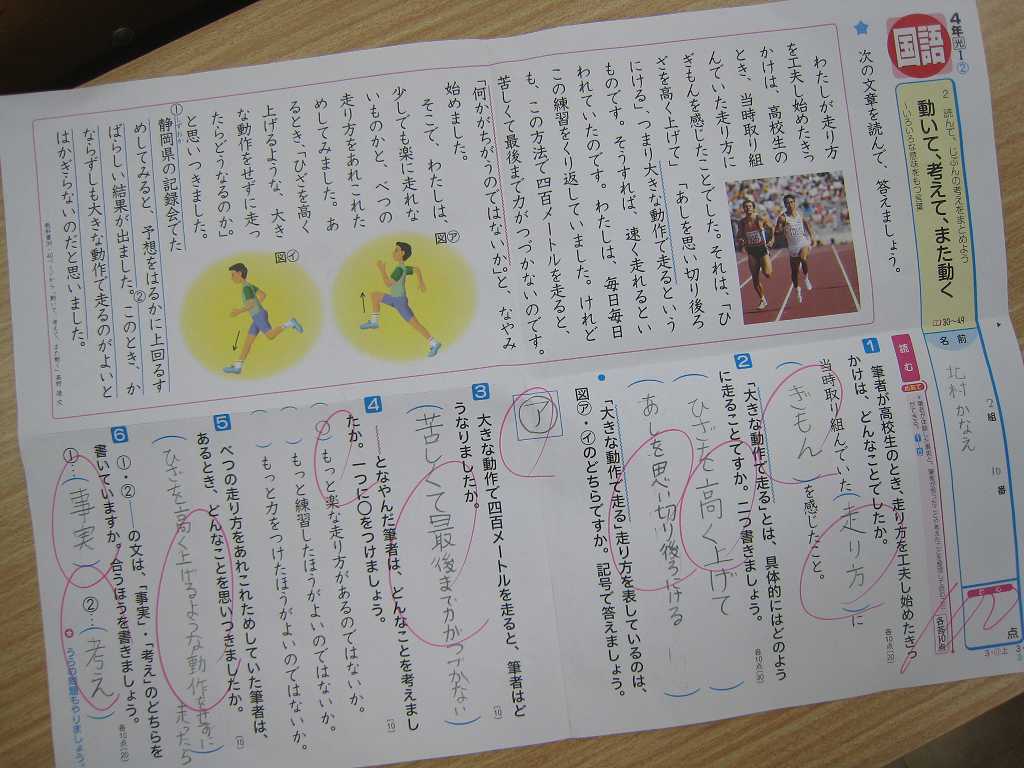 4年 光Ⅰ②
国語
2 読んで、じぶんの考えをまとめよう
動いて、考えて、また動く
―いろいろな意味をもつ言葉
30~49
名前
北村 かなえ
2組 10番
点
次の文章を読んで、答えましょう。
わたしが走り方
を工夫し始めたきっ
かけは、高校生の
とき、当時取り組
んでいた走り方に
ぎもんを感じたことでした。それは、「ひ
ざを高く上げて」「あしを思い切り後ろ
にける」、つまり大きな動作で走るという
ものです。そうすれば、速く走れるとい
われていたのです。わたしは、毎日毎日
この練習をくり返していました。けれど
も、この方法で四百メートルを走ると、
苦しくて最後まで力がつづかないのです。
「何かがちがうのではないか。」と、なやみ
始めました。
そこで、わたしは、
少しでも楽に走れな
いものかと、べつの
走り方をあれこれた
めしてみました。あ
るとき、「ひざを高く
上げるような、大き
な動作をせずに走っ
たらどうなるのか。」
と思いつきました。
①静岡県の記録会でた
しずおか
めしてみると、予想をはるかに上回るす
ばらしい結果が出ました。②このとき、か
ならずしも大きな動作で走るのがよいと
はかぎらないのだと思いました。
図ア
図イ
読む
めあて
各10点
1 筆者が高校生のとき、走り方を工夫し始めたきっ
かけは、どんなことでしたか。
各10点(20)
当時取り組んでいた(走り方)に
(ぎもん)を感じたこと。
2 「大きな動作で走る」とは、具体的にはどのよう
に走ることですか。二つ書きましょう。
各10点(30)
(ひざを高く上げて)
(あしを思い切り後ろにける)
●「大きな動作で走る」走り方を表しているのは、
図ア・イのどちらですか。記号で答えましょう。
ア
3 大きな動作で四百メートルを走ると、筆者はど
うなりましたか。
(10)
(苦しくて最後まで力がつづかない)
4 ―となやんだ筆者は、どんなことを考えまし
たか。一つに○をつけましょう。
(10)
(○)もっと楽な走り方があるのではないか。
( )もっと練習したほうがよいのではないか。
( )もっと力をつけたほうがよいのではないか。
5 べつの走り方をあれこれためしていた筆者は、
あるとき、どんなことを思いつきましたか。
(10)
(ひざを高く上げるような動作をせずに走ったら
6 ①・②―の文は、「事実」・「考え」のどちらを
書いていますか。合うほうを書きましょう。
各10点(20)
①…(事実) ②…(考え)
うらの問題もやりましょう。